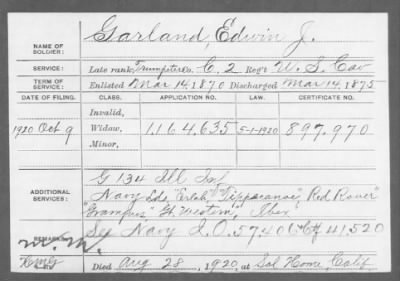 NAME OF SOLDIER: Garland, Edwin J.
SERVICE: Late rank, Trumpeter Co. C. 2 Reg't U. S. Cav
TERM OF SERVICE: Enlisted Mar 14, 1870 Discharged Mar 14, 1875
DATE OF FILING. CLASS. APPLICATION NO. LAW. CERTIFICATE NO.
Invalid,
1920 Oct 9 Widow, 1,164,635 5-1-1920 897,970
Minor,
G 134 Ill Inf
ADDITIONAL SERVICES: Navy Lds "Tippecanoe", "Red Rover"
"Grampus", "Gt Western", Ibex
REMARKS: See Navy I.O. 5740 Ctf 41,520
Died Aug 28, 1920, at Sol Home, Calif